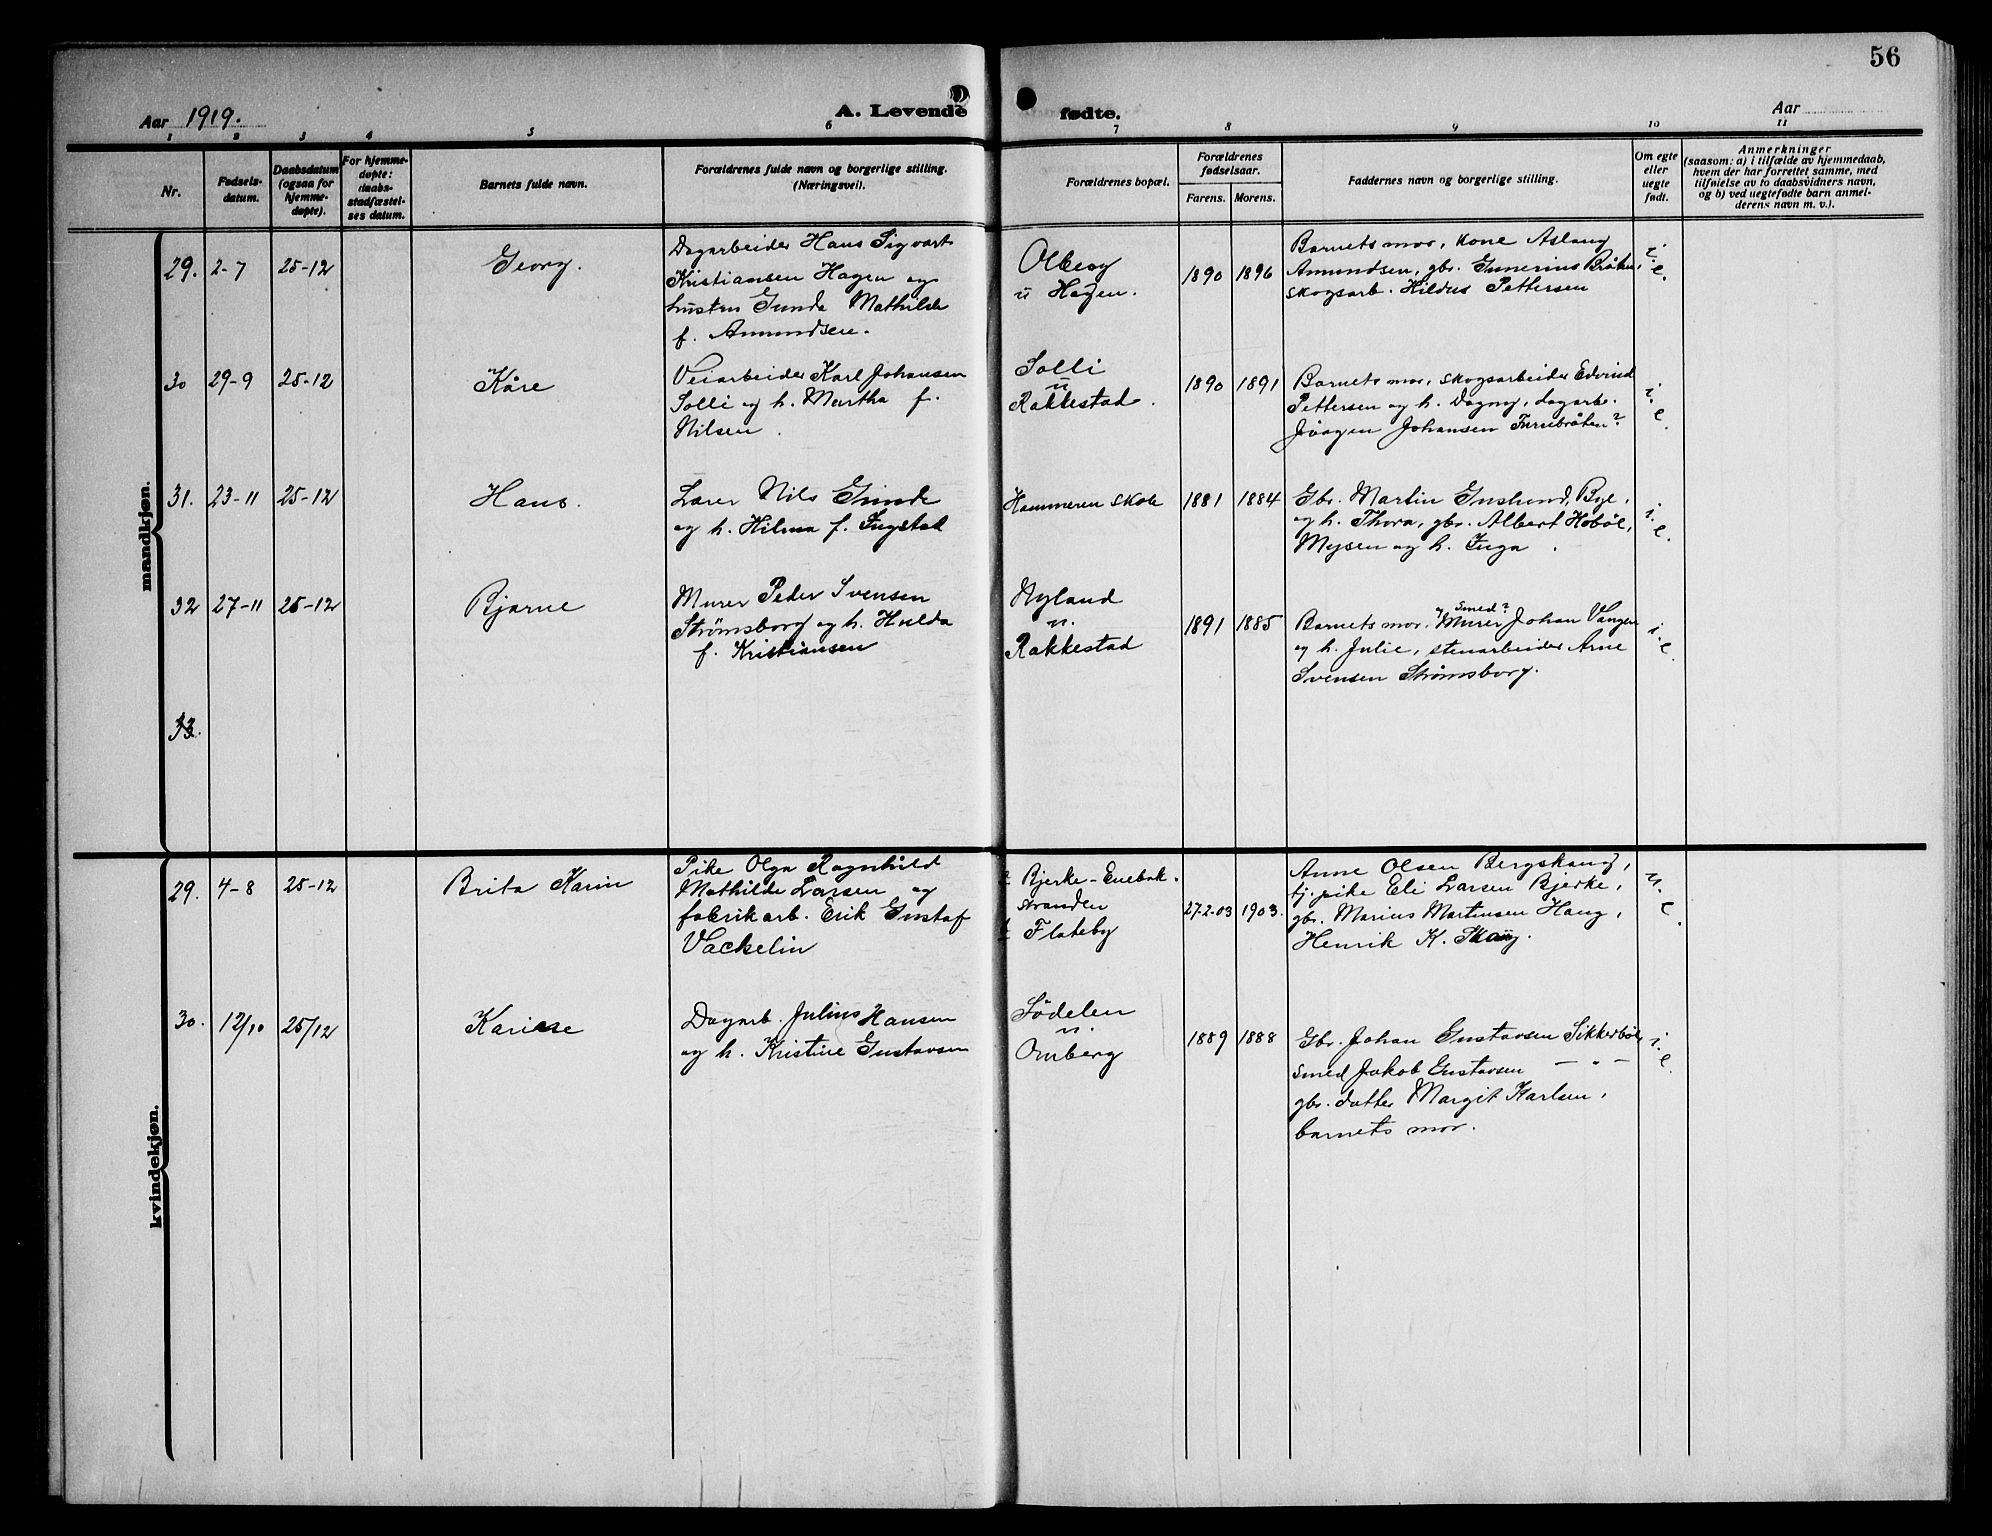 56
Aar 1919.
A. Levende fødte.
Aar
1 2 3 4 5 6 7 8 9 10 11
Nr.
Fødsels-
datum.
Daabsdatum
(ogsaa for
hjemme-
døpte).
For hjemme-
døpte:
daabs-
stadfæstel-
ses datum.
Barnets fulde navn.
Forældrenes fulde navn og borgerlige stilling.
(Næringsvei).
Forældrenes bopæl.
Forældrenes
fødselsaar.
Farens. Morens.
Faddernes navn og borgerlige stilling.
Om egte
eller
uegte
født.
Anmerkninger
(saasom: a) i tilfælde av hjemmedaab,
hvem der har forrettet samme, med
tilføielse av to daabsvidners navn,
og b) ved uegtefødte barn anmel-
derens navn m. v.).
mandkjøn.
29. 2-7 25-12
Georg.
Dagarbeider Hans Sigvart
Kristiansen Hagen og
hustru Gunda Mathilde
f. Amundsen.
Olberg
u Hagen.
1890 1896
Barnets mor, kone Aslaug
Amundsen, gbr. Gunerius Bråten,
skogsarb. Hildus Pettersen
i.
e.
30 29-9 25-12
Kåre
Veiarbeider Karl Johansen
Solli og h. Martha f.
Nilsen.
Solli
u
Rakkestad.
1890 1891
Barnets mor, skogsarbeider Edvind
Pettersen og h. Dagny, dagarb.
Jörgen Johansen Furubråten?
i.
e.
31. 23-11 25-12
Hans.
Lærer Nils Grinde
og h. Hilma f. Ingstad
Hammeren skole
1881 1884
Gbr. Martin Enslund, Bye,
og h. Thora, gbr. Albert Hobøl,
Mysen og h. Inga.
i.
e.
32 27-11 25-12
Bjarne
Murer Peder Svensen
Strømsborg og h. Hulda
f. Kristiansen
Nyland
u.
Rakkestad
1891 1885
og Smed?
Barnets mor, Murer Johan Vangen
og h. Julie, stenarbeider Arne
Svensen Strømsborg.
i.
e.
33.
kvindekjøn.
29. 4-8 25-12
Brita Karin
Pike Olga Ragnhild
Mathilde Larsen og
fabrikarb. Erik Gustaf
Vackelin
Bjerke - Enebak.
stranden
Flateby
27-2-03 1903.
Anne Olsen Bergskaug,
tj. pike Eli Larsen Bjerke,
gbr. Marius Martinsen Haug,
Henrik K. Skaug.
u.
e.
30. 12/10 25/12
Karine
Dagarb. Julius Hansen
og h. Kristine Gustavsen
Södelen
u.
Omberg
1889 1888
Gbr. Johan Gustavsen Sikkerbøl,
smed Jakob Gustavsen — " —
gbr. datter Margit Karlsen,
barnets mor.
i.
e.